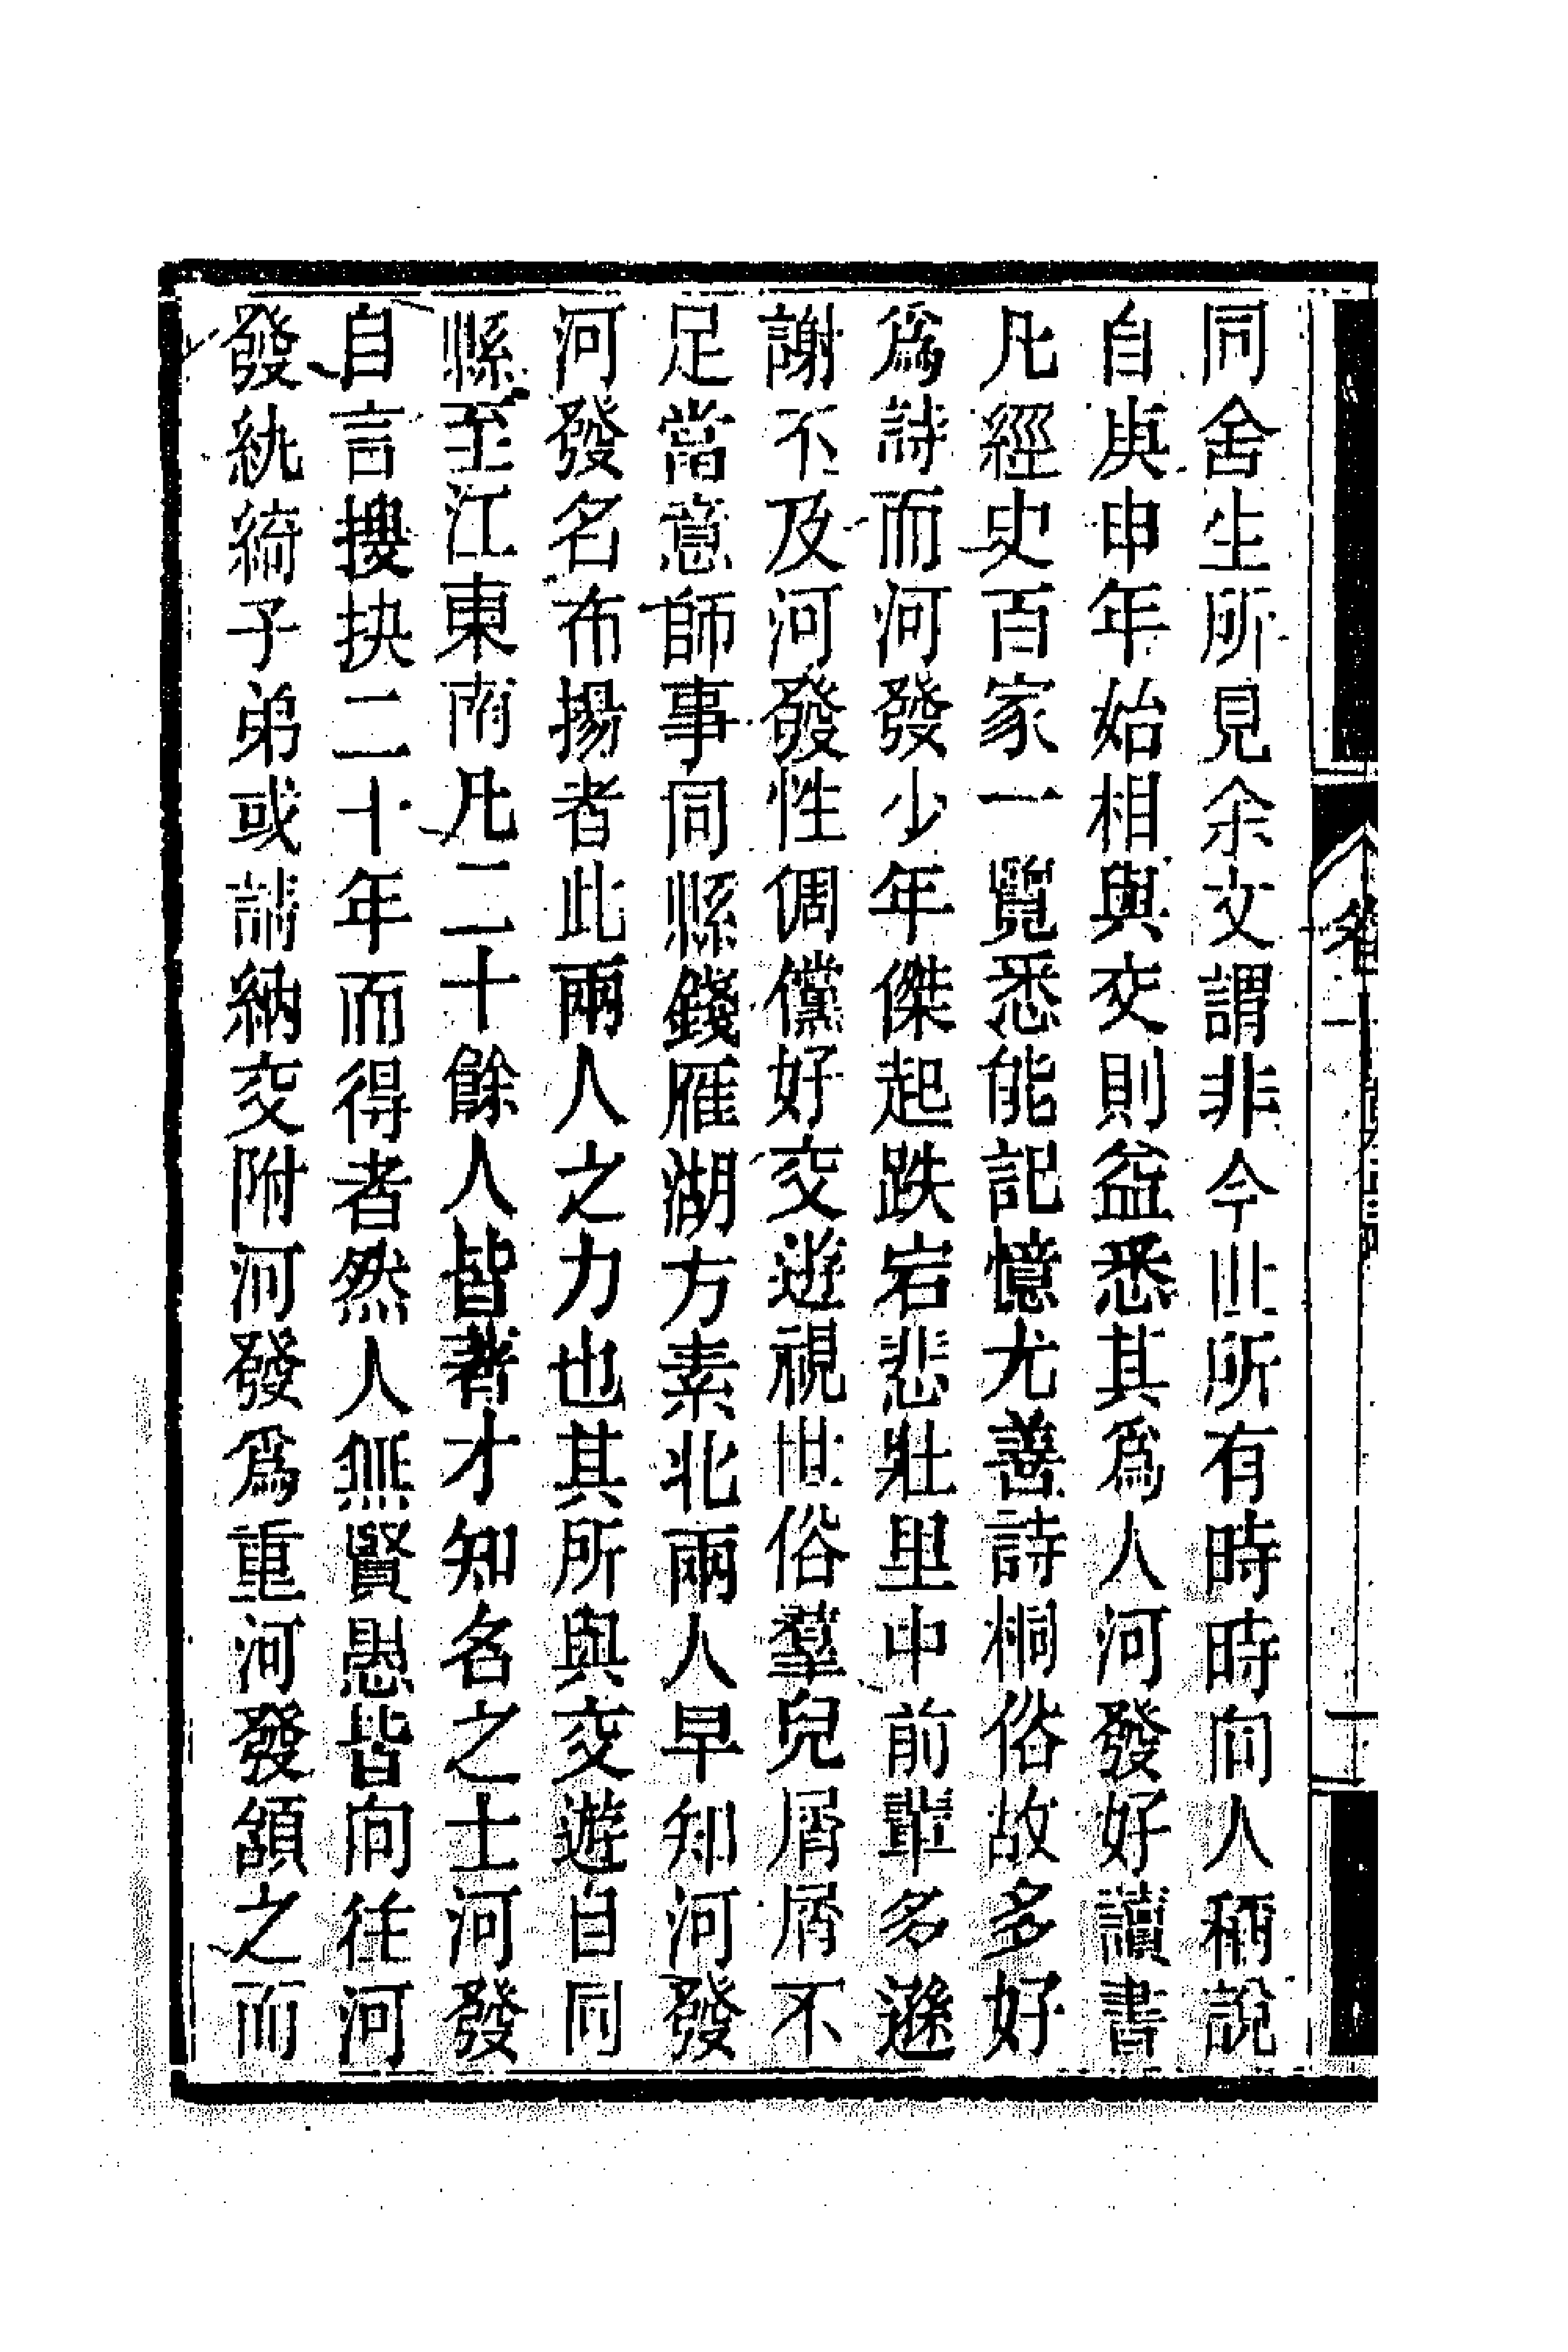 同舍生所見余文謂非今世所有時時向人稱說
自庚申年始相與交則益悉其爲人河發好讀書
凡經史百家一覽悉能記憶尤善詩桐俗故多好
爲詩而河發少年傑起跌宕悲壯里中前輩多遜
謝不及河發性倜儻好交遊視世俗羣兒屑屑不
足當意師事同縣錢雁湖方素北兩人早知河發
河發名布揚者此兩人之力也其所與交遊自同
縣至江東南凡二十餘人皆著才知名之士河發
自言搜抉二十年而得者然人無賢愚皆向往河
發紈綺子弟或請納交附河發爲重河發頷之而
卷一